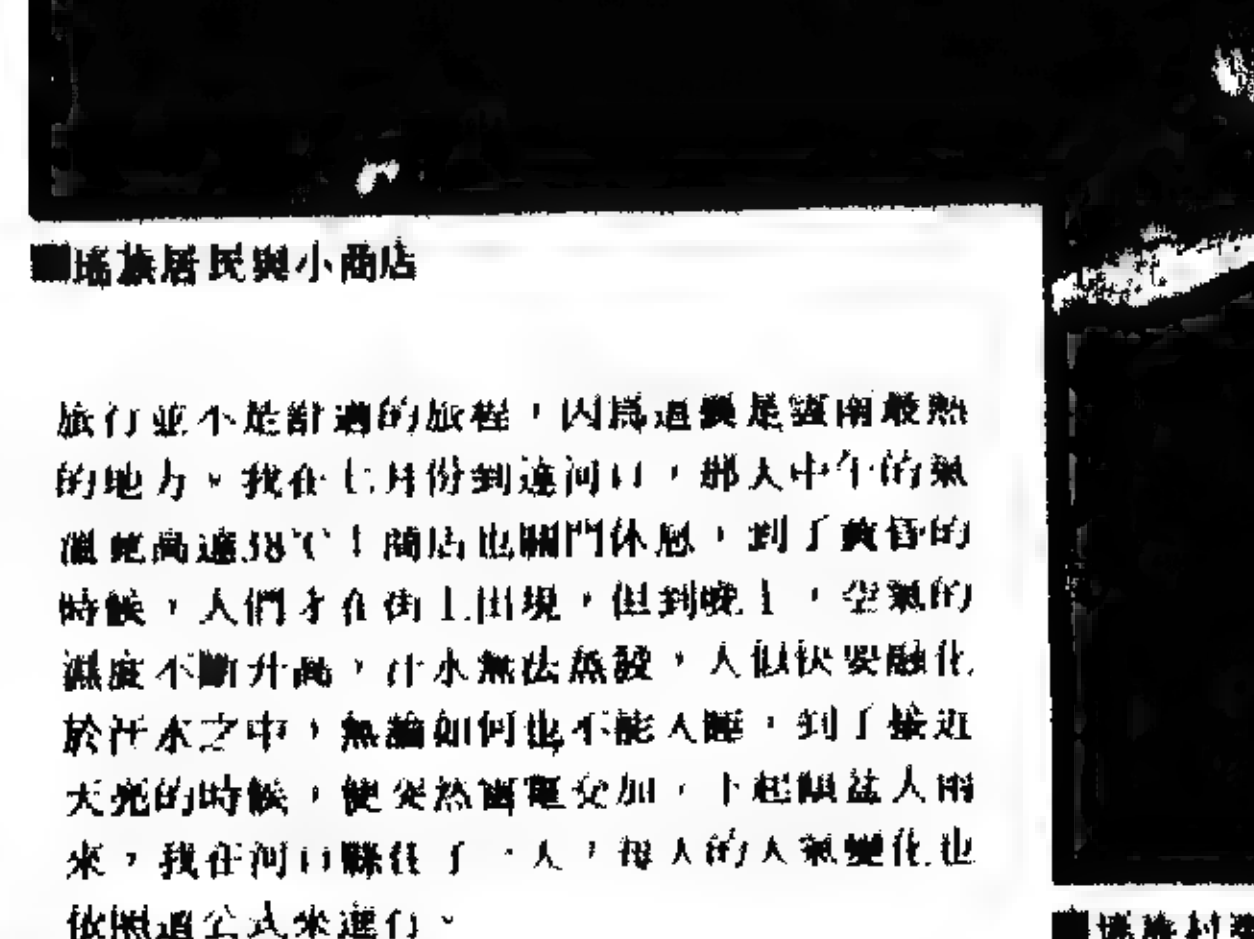 ■瑤族居民與小商店
旅行並不是舒適的旅程，因為這裏是雲南最熱
的地方。我在七月份到達河口，那天中午的氣
溫竟高達38℃！商店也關門休息，到了黃昏的
時候，人們才在街上出現，但到晚上，空氣的
濕度不斷升高，汗水無法蒸發，人似快要融化
於汗水之中，無論如何也不能入睡，到了接近
天亮的時候，便突然雷電交加，下起傾盆大雨
來，我在河口縣住了一天，每天的天氣變化也
依照這公式來進行。
■瑤族村